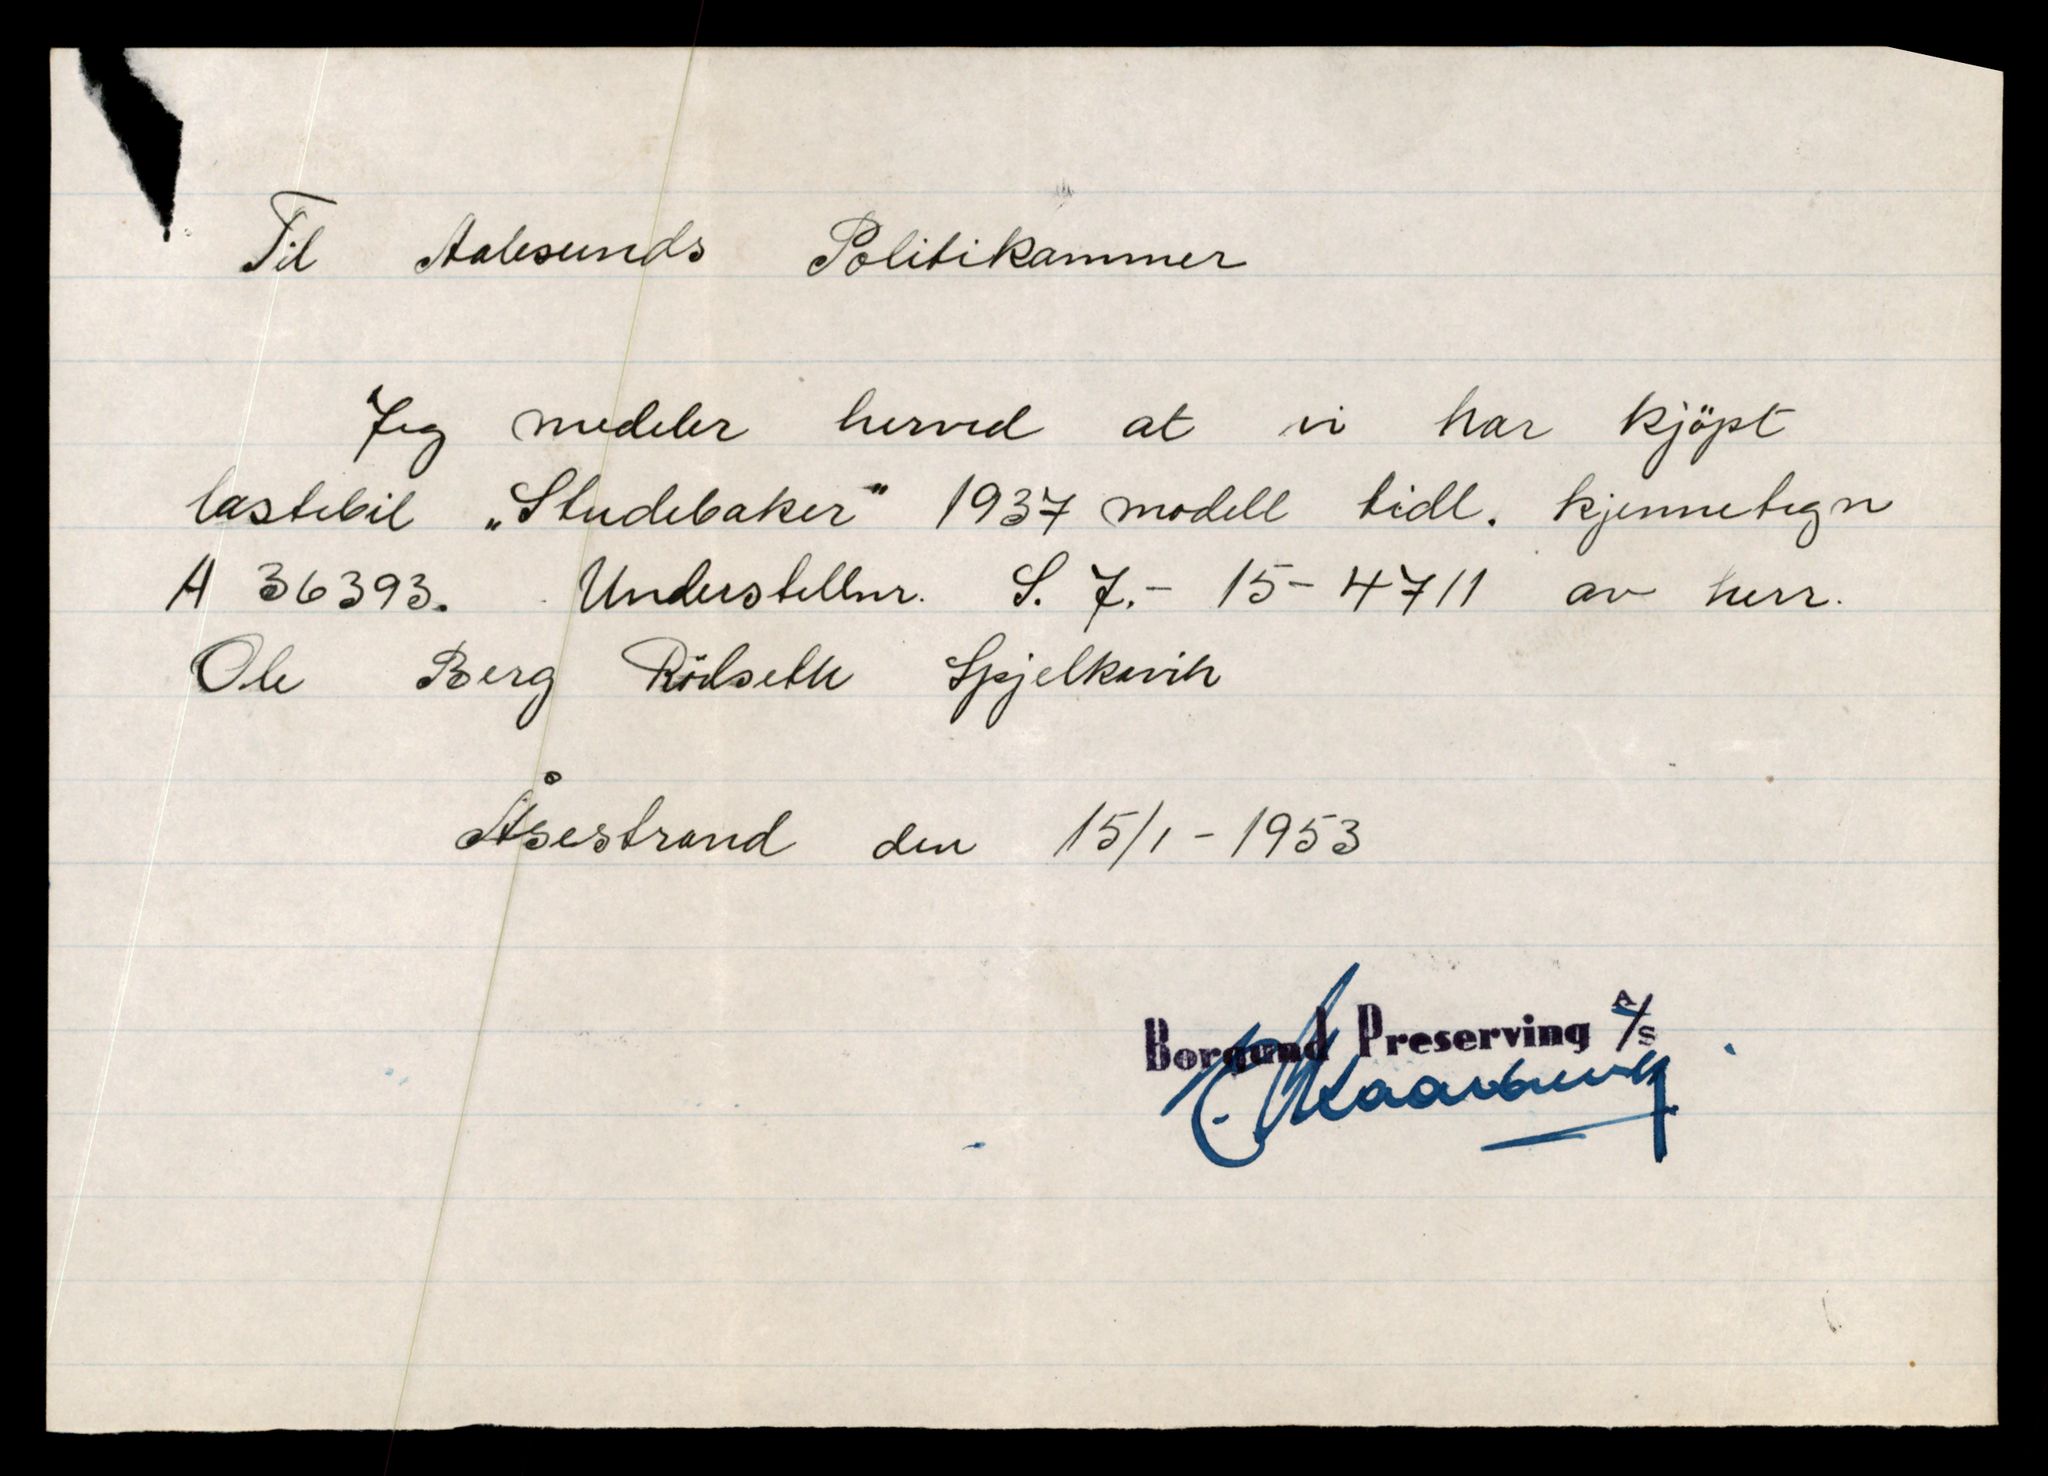 Til Aalesunds Politikammer
Jeg medeler herved at vi har kjöpt
lastebil „Studebaker" 1937 modell tidl. kjennetegn
A 36393. Understellnr. S. 7.- 15-4711 av herr.
Ole Berg Rödseth Spjelkavik
Åsestrand den 15/1-1953
Borgund Preserving A/S